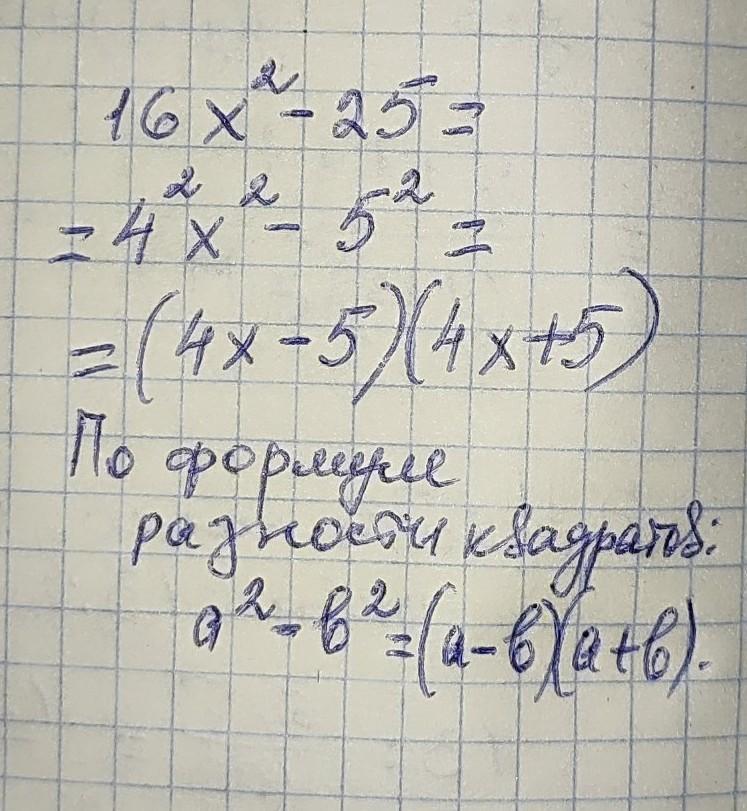 16x² - 25 =
= 4²x² - 5² =
= (4x - 5)(4x + 5)
По формуле
разности квадратов:
a² - b² = (a - b)(a + b).